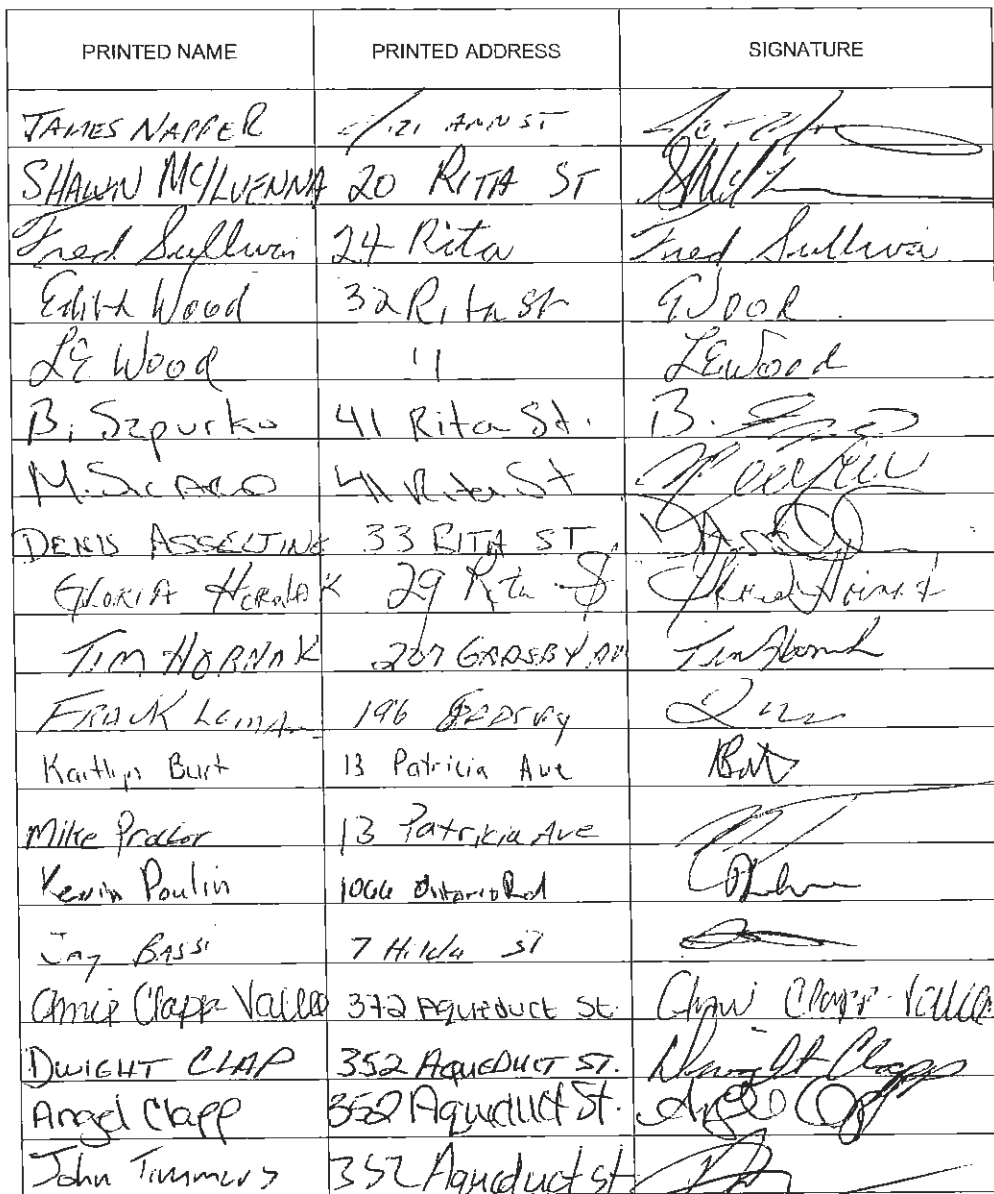 PRINTED NAME PRINTED ADDRESS SIGNATURE
JAMES NAPPER 121 ANN ST
SHAWN MCILVENNA 20 RITA ST
Fred Sullivan 24 Rita Fred Sullivan
Edith Wood 32 Rita St EWood
LE Wood " LEWood
B. Szpurko 41 Rita St. B.
M. SICARD 41 Rita St
DENIS ASSELTINE 33 RITA ST
GLORIA HORNAK 29 Rita St
TIM HORNAK 207 GADSBY AV Tim Hornak
FRANK 196
Kaitlyn Burt 13 Patricia Ave Burt
Mike Proctor 13 Patricia Ave
Kevin Poulin 1066 Ontario Rd
Jay BASSI 7 Hilda ST
Clapp-Vallee 372 AQUEDUCT St. Clapp-Vallee
DWIGHT CLAP 352 AQUEDUCT ST. Dwight Clapp
Angel Clapp 352 Aqueduct St.
John Timmers 352 Aqueduct st